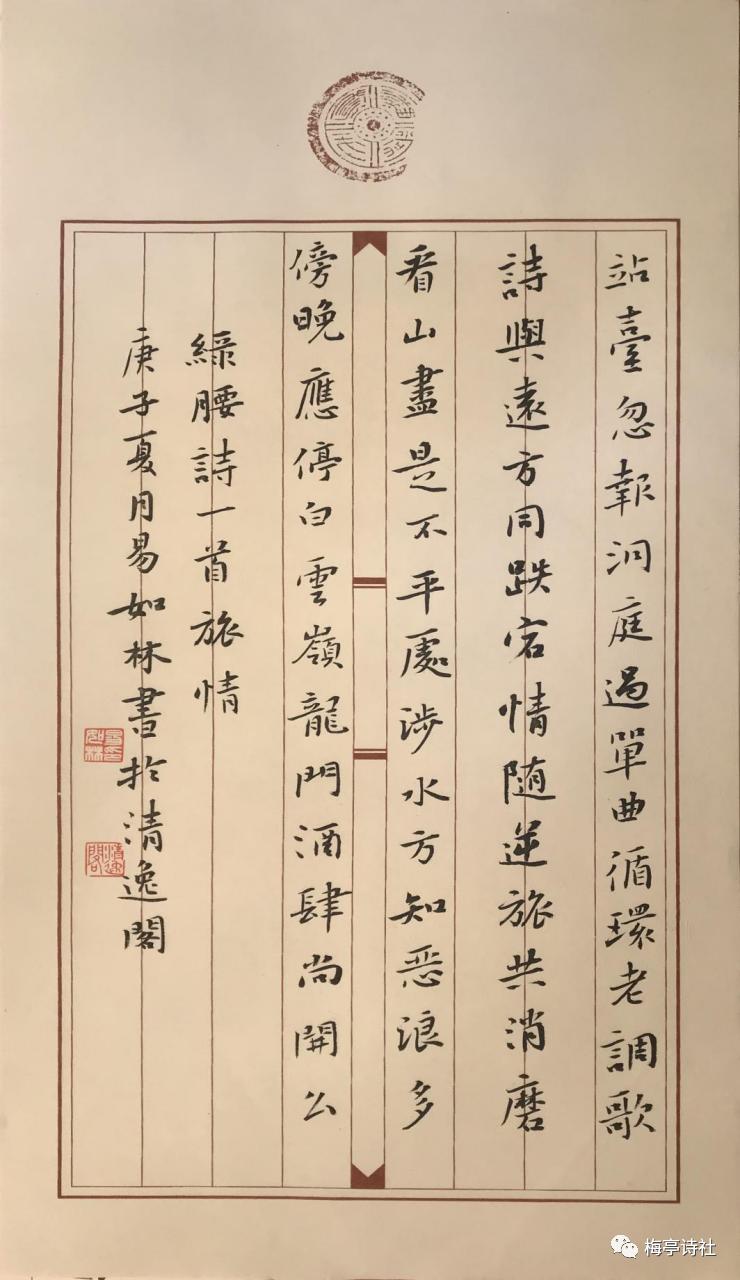 站臺忽報洞庭過單曲循環老調歌
詩與遠方同跌宕情隨逆旅共消磨
看山盡是不平處涉水方知恶浪多
傍晚應停白雲嶺龍門酒肆尚開么
綠腰詩一首旅情
庚子夏月易如林書於清逸閣
梅亭诗社